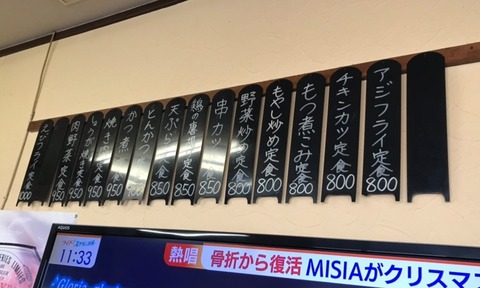 アジフライ定食 800
チキンカツ定食 800
もつ煮こみ定食 800
もやし炒め定食 800
野菜炒め定食 800
串カツ 定食 850
鶏の唐揚定食 850
天ぷら定食 850
とんかつ定食 850
かつ煮定食 950
焼き肉定食 950
しょうが焼定食 950
肉野菜定食 950
えびフライ定食
AQUOS
11:33
熱唱 骨折から復活 MISIAがクリスマ
Gloria